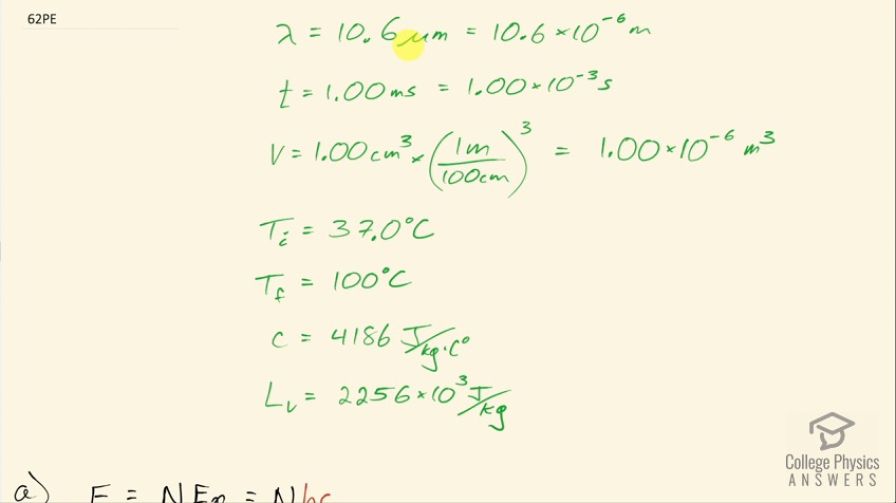 62PE
λ = 10.6 μm = 10.6 × 10⁻⁶ m
t = 1.00 ms = 1.00 × 10⁻³ s
V = 1.00 cm³ × (1m/100cm)³ = 1.00 × 10⁻⁶ m³
Tᵢ = 37.0°C
T_f = 100°C
c = 4186 J/kg·C°
Lᵥ = 2256 × 10³ J/kg
a) E = N Eₚ = N hc
College Physics
ANSWERS